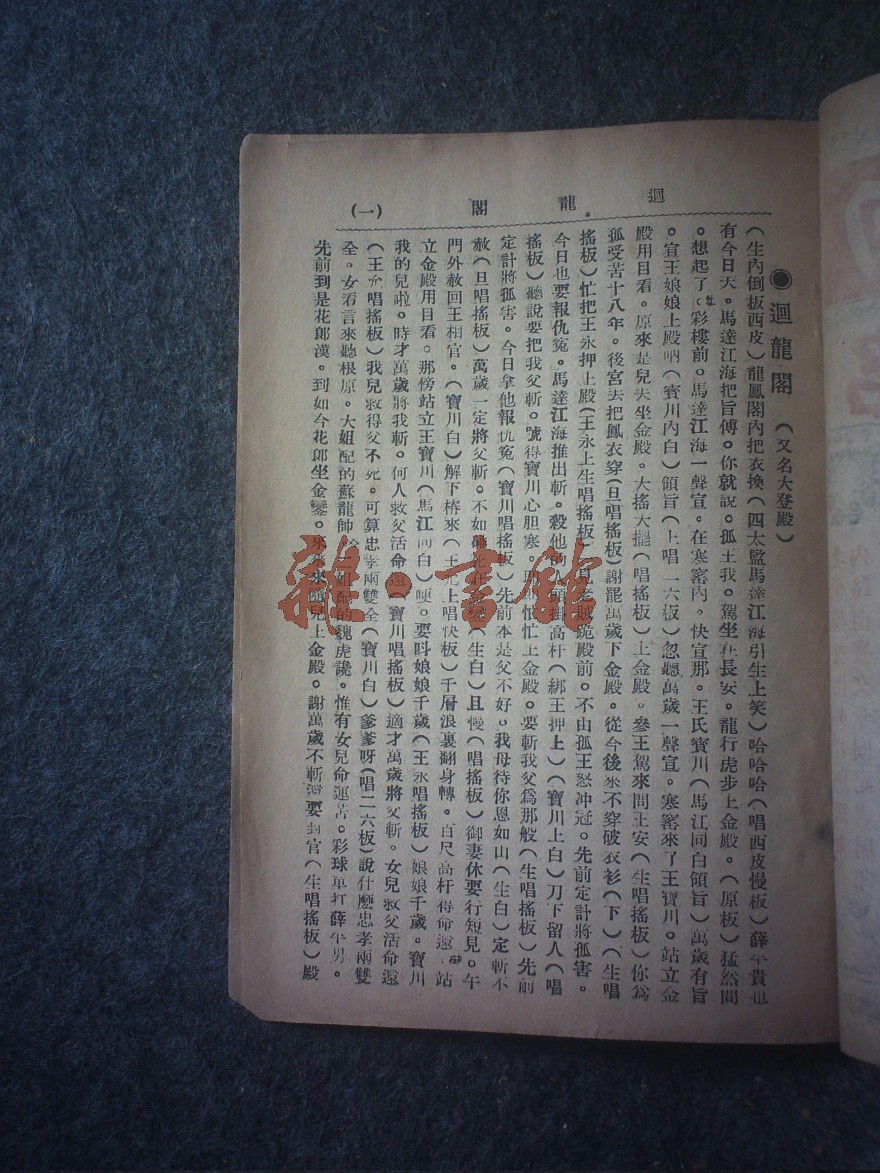 迴龍閣 (一)
◉迴龍閣 (又名大登殿)
(生內倒板西皮)龍鳳閣內把衣換(四太監馬達江海引生上笑)哈哈哈(唱西皮慢板)薛平貴也
有今日天。馬達江海把旨傳。你就說。孤王我。駕坐在長安。龍行虎步上金殿。(原板)猛然間
。想起了。彩樓前。馬達江海一聲宣。在寒窰內。快宣那。王氏寶川(馬江同白領旨)萬歲有旨
。宣王娘娘上殿吶(寶川內白)領旨(上唱二六板)忽聽萬歲一聲宣。寒窰來了王寶川。站立金
殿用目看。原來是兒夫坐金殿。大搖大擺(唱搖板)上金殿。參王駕來問王安(生唱搖板)你爲
孤受苦十八年。後宮去把鳳衣穿(旦唱搖板)謝罷萬歲下金殿。從今後來不穿破衣衫(下)(生唱
搖板)忙把王永押上殿(王永上生唱搖板)見老賊跪殿前。不由孤王怒冲冠。先前定計將孤害。
今日也要報仇冤。馬達江海推出斬。殺他的人頭掛高杆(綁王押上)(寶川上白)刀下留人(唱
搖板)聽說要把我父斬。號得寶川心胆寒。忙忙上金殿。要斬我父爲那般(生唱搖板)先前
定計將孤害。今日拿他報仇冤(寶川唱搖板)先前本是父不好。我母待你恩如山(生白)定斬不
赦(旦唱搖板)萬歲一定將父斬。不如死在(生白)且慢(唱搖板)御妻休要行短見。午
門外赦回王相官。(寶川白)解下樁來(王允上唱快板)千層浪裏翻身轉。百尺高杆得命還。站
立金殿用目看。那傍站立王寶川(馬江同白)哽。要呌娘娘千歲(王永唱搖板)娘娘千歲。寶川
我的兒啦。時才萬歲將我斬。何人救父活命還(寶川唱搖板)適才萬歲將父斬。女兒救父活命還
(王允唱搖板)我兒救得父不死。可算忠孝兩雙全(寶川白)爹爹呀(唱二六板)說什麽忠孝兩雙
全。女有言來聽根原。大姐配的蘇龍帥。二姐配的魏虎讒。惟有女兒命運苦。彩球單打薛平男。
先前到是花郎漢。到如今花郎坐金鑾。來來來隨兒上金殿。謝萬歲不斬還要封官(生唱搖板)殿
雜·書館